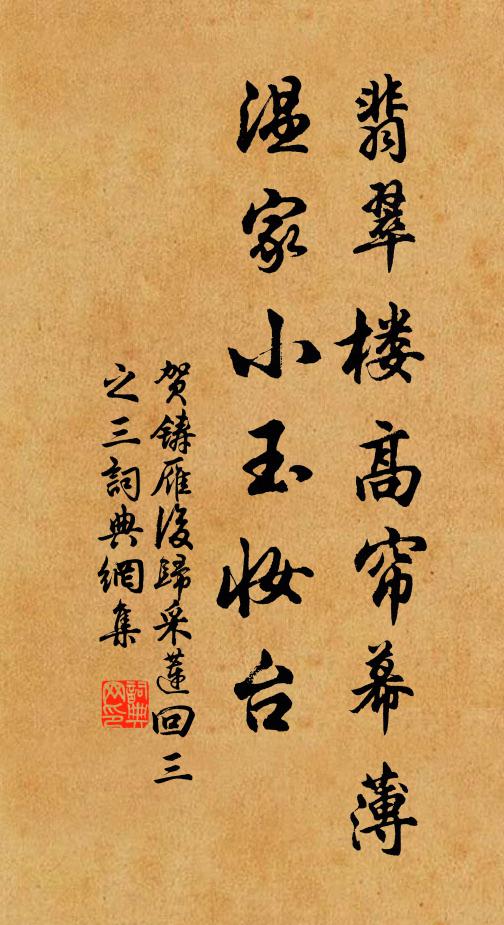 翡翠楼高帘幕薄
温家小玉妆台
贺铸雁後歸采蓮回三
之三詞典網集
詞典网印